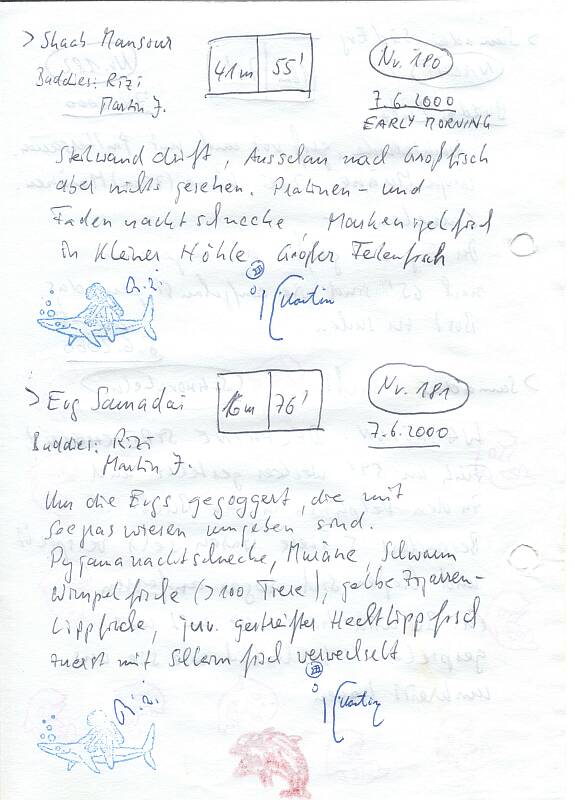 > Shaab Mansour
41m 55'
Nr. 180
Buddies: Rizi
Martin J.
7.6.2000
EARLY MORNING
Steilwand drift, Ausschau nach Großfisch
aber nichts gesehen. Platinen- und
Fadennacktschnecke, Maskenigelfisch
in kleiner Höhle, großer Feilenfisch
Rizi
Martin
> Erg Samadai
16m 76'
Nr. 181
Buddies: Rizi
Martin J.
7.6.2000
Um die Ergs gegoggert, die mit
Seegraswiesen umgeben sind.
Pyjamanacktschnecke, Muräne, Schwarm
Wimpelfische (>100 Tiere), gelbe Zigarren-
lippfische, juv. gestreifter Hechtlippfisch
zuerst mit verwechselt
Rizi
Martin